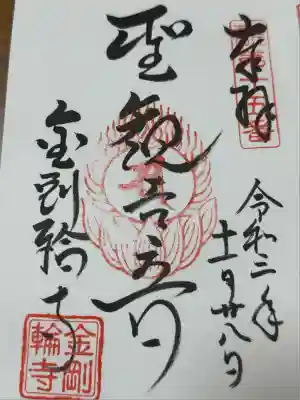 奉拝
令和二年
十一月廿八日
聖観音
金剛輪寺
金剛
輪寺